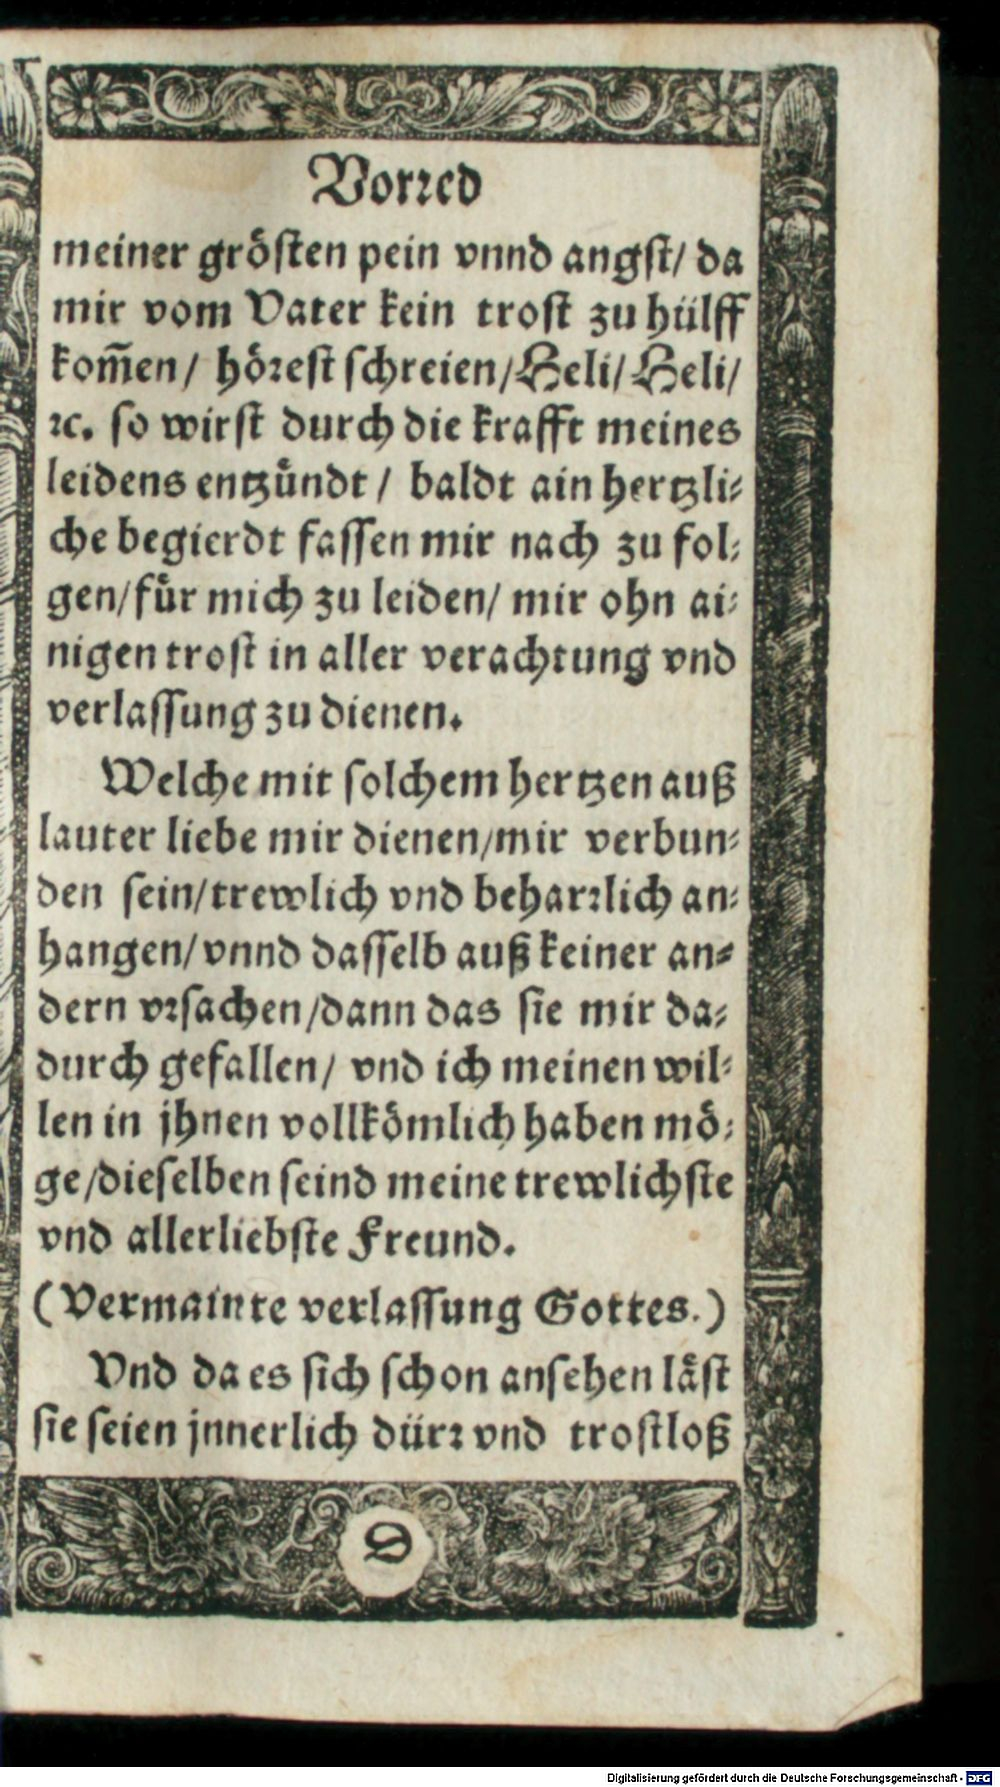 Vorꝛed
meiner grösten pein vnnd angst/ da
mir vom Vater kein trost zu hülff
kom̃en/ höꝛest schreien/Heli/Heli/
ꝛc. so wirst durch die krafft meines
leidens entzündt / baldt ain hertzli⸗
che begierdt fassen mir nach zu fol⸗
gen/für mich zu leiden/ mir ohn ai⸗
nigen trost in aller verachtung vnd
verlassung zu dienen.
Welche mit solchem hertzen auß
lauter liebe mir dienen/mir verbun⸗
den sein/trewlich vnd beharꝛlich an⸗
hangen/vnnd dasselb auß keiner an⸗
dern vꝛsachen/dann das sie mir da⸗
durch gefallen/ vnd ich meinen wil⸗
len in jhnen vollkömlich haben mö⸗
ge/dieselben seind meine trewlichste
vnd allerliebste Freund.
(Vermainte verlassung Gottes.)
Vnd da es sich schon ansehen läst
sie seien jnnerlich dürꝛ vnd trostloß
D
Digitalisierung gefördert durch die Deutsche Forschungsgemeinschaft - DFG